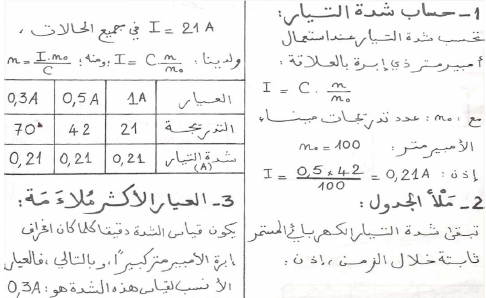 1 - حساب شدة التيار:
تحسب شدة التيار عند استعمال
أمبيرمتر ذي إبرة بالعلاقة:
I = C . m/m₀
مع، m₀: عدد تدريجات ميناء
الأمبيرمتر: m₀ = 100
إذن: I = 0,5 × 42 / 100 = 0,21A
2 - مَلْأ الجدول:
تبقى شدة التيار الكهربائي المستمر
ثابتة خلال الزمن، إذن:
I = 21A في جميع الحالات،
ولدينا: I = C . m/m₀ ومنه: m = I.m₀/C
العيار 1A 0,5A 0,3A
التدريجة 21 42 70
شدة التيار (A) 0,21 0,21 0,21
3 - العيار الأكثر مُلاءَمَة:
يكون قياس الشدة دقيقا كلما كان انحراف
إبرة الأمبيرمتر كبيرًا، وبالتالي، فالعيار
الأنسب لقياس هذه الشدة هو: 0,3A